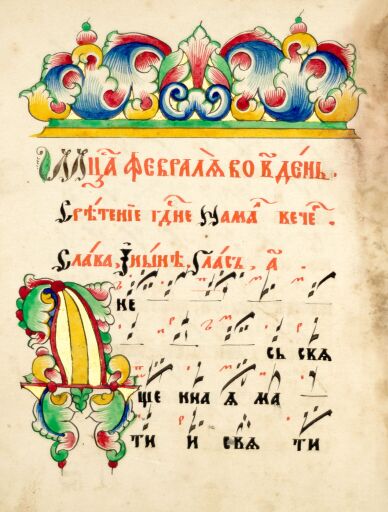 Мц҃а февралѧ во в҃ день.
Срѣтенїе гдⷭ҇не намаⷧ҇ вечеⷬ҇.
Слава, Їнынѣ, Гласъ, а҃.
Д ке
сь свѧ
ще ннаѧ ма
ти и свѧ ти